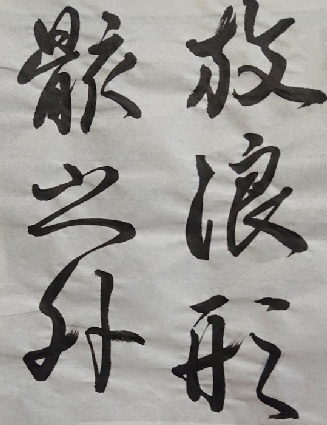 放浪形
骸之外